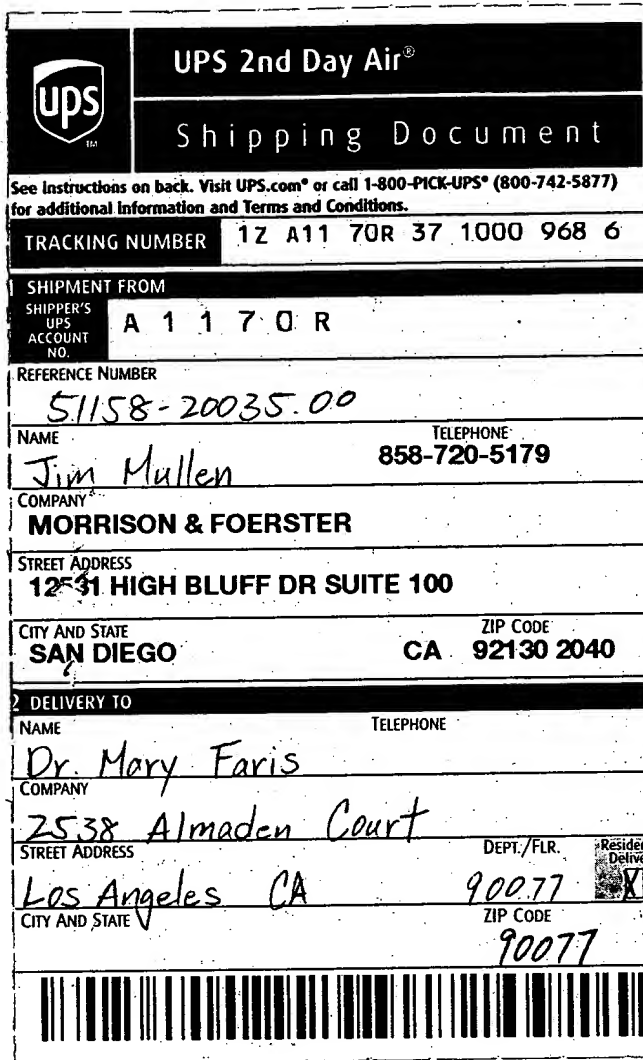 UPS 2nd Day Air®
ups
TM
Shipping Document
See instructions on back. Visit UPS.com® or call 1-800-PICK-UPS® (800-742-5877)
for additional information and Terms and Conditions.
TRACKING NUMBER 1Z A11 70R 37 1000 968 6
1 SHIPMENT FROM
SHIPPER'S
UPS
ACCOUNT
NO.
A 1 1 7 0 R
REFERENCE NUMBER
51158-20035.00
NAME TELEPHONE
Jim Mullen 858-720-5179
COMPANY
MORRISON & FOERSTER
STREET ADDRESS
12531 HIGH BLUFF DR SUITE 100
CITY AND STATE ZIP CODE
SAN DIEGO CA 92130 2040
2 DELIVERY TO
NAME TELEPHONE
Dr. Mary Faris
COMPANY
2538 Almaden Court
STREET ADDRESS DEPT./FLR. Residen
Delive
Los Angeles CA 90077 X
CITY AND STATE ZIP CODE
90077